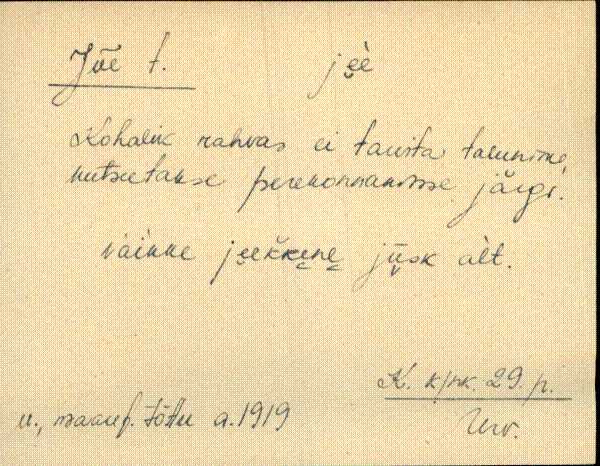 Jõe t. jẹè
Kohalik rahvas ei tarvita talunime,
kutsutakse perekonnanime järgi.
väikke jẹeǩkẹnẹ jịịsk ält.
K. k/nk. 29. p.
u., maaref. tõttu a. 1919
Urv.